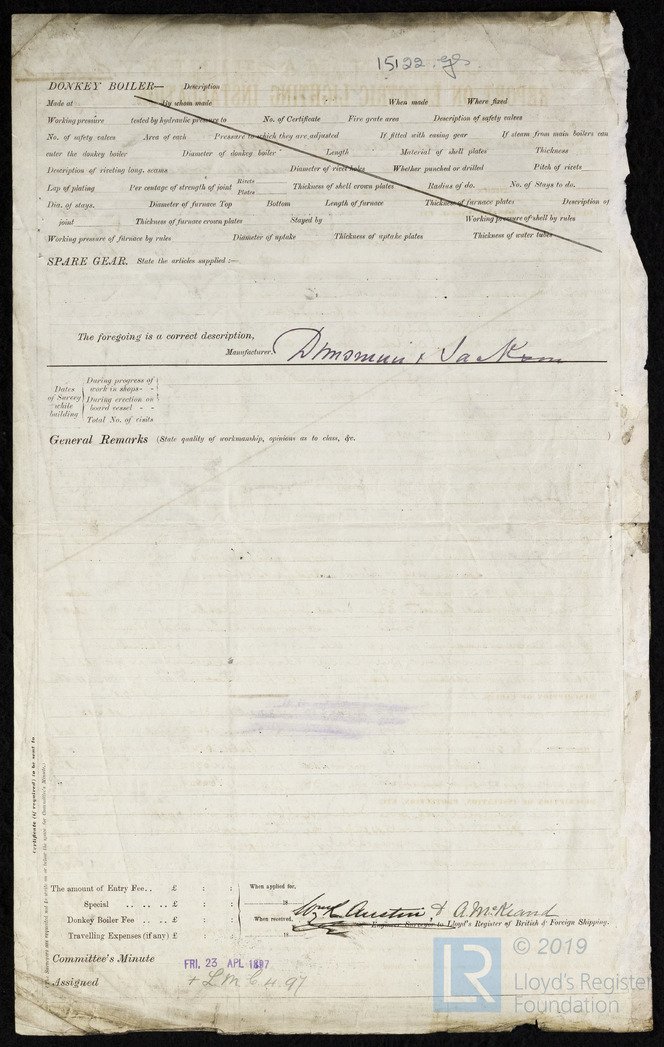 15122 gls.
DONKEY BOILER— Description
Made at By whom made When made Where fixed
Working pressure tested by hydraulic pressure to No. of Certificate Fire grate area Description of safety valves
No. of safety valves Area of each Pressure to which they are adjusted If fitted with easing gear If steam from main boilers can
enter the donkey boiler Diameter of donkey boiler Length Material of shell plates Thickness
Description of riveting long. seams Diameter of rivet holes Whether punched or drilled Pitch of rivets
Lap of plating Per centage of strength of joint Rivets Plates Thickness of shell crown plates Radius of do. No. of Stays to do.
Dia. of stays. Diameter of furnace Top Bottom Length of furnace Thickness of furnace plates Description of
joint Thickness of furnace crown plates Stayed by Working pressure of shell by rules
Working pressure of furnace by rules Diameter of uptake Thickness of uptake plates Thickness of water tubes
SPARE GEAR. State the articles supplied :—
The foregoing is a correct description,
Manufacturer. Dunsmuir & Jackson
Dates of Survey while building
During progress of work in shops - -
During erection on board vessel - -
Total No. of visits
General Remarks (State quality of workmanship, opinions as to class, &c.
Certificate (if required) to be sent to
The Surveyors are requested not to write on or below the space for Committee's Minute.
The amount of Entry Fee . . £ : :
Special . . . . . . £ : :
Donkey Boiler Fee . . . £ : :
Travelling Expenses (if any) £ : :
When applied for,
18
When received,
18
Wm R Austin & A. McKeand
Engineer Surveyor to Lloyd's Register of British & Foreign Shipping.
Committee's Minute FRI. 23 APL 1897
Assigned + L.M.C. 4.97
© 2019
LR
Lloyd's Register
Foundation